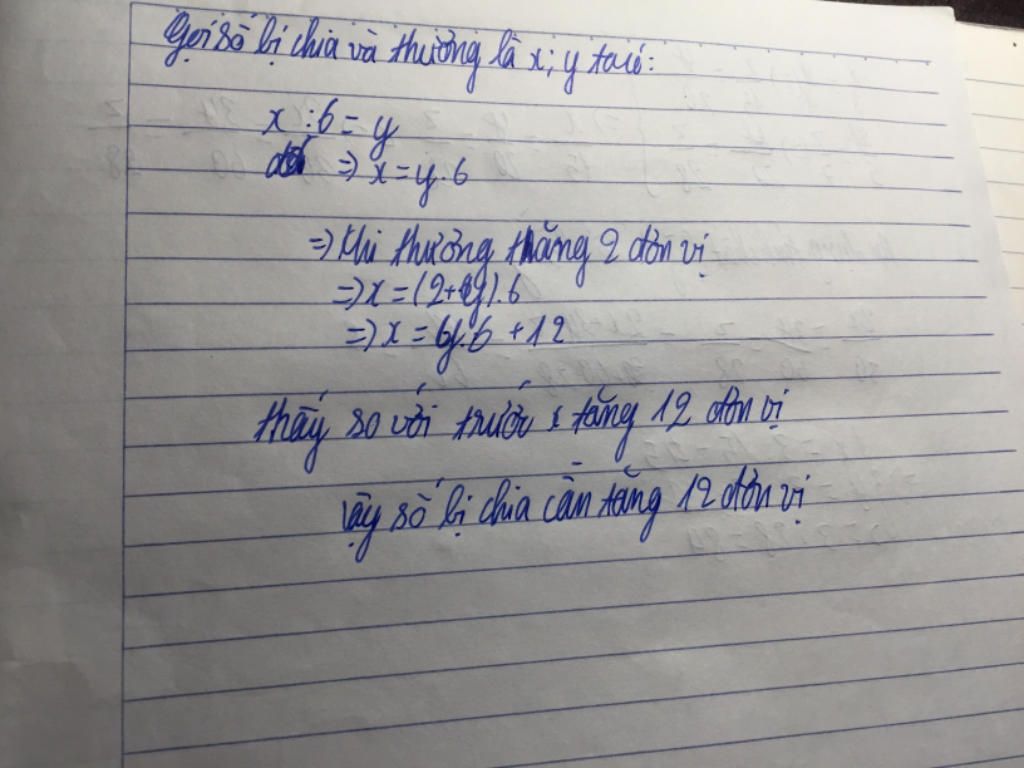 Gọi số bị chia và thương là x; y ta có:
x : 6 = y
=> x = y.6
=> Khi thương tăng 2 đơn vị
=> x = (2+y).6
=> x = y.6 + 12
thấy so với trước x tăng 12 đơn vị
Vậy số bị chia cần tăng 12 đơn vị